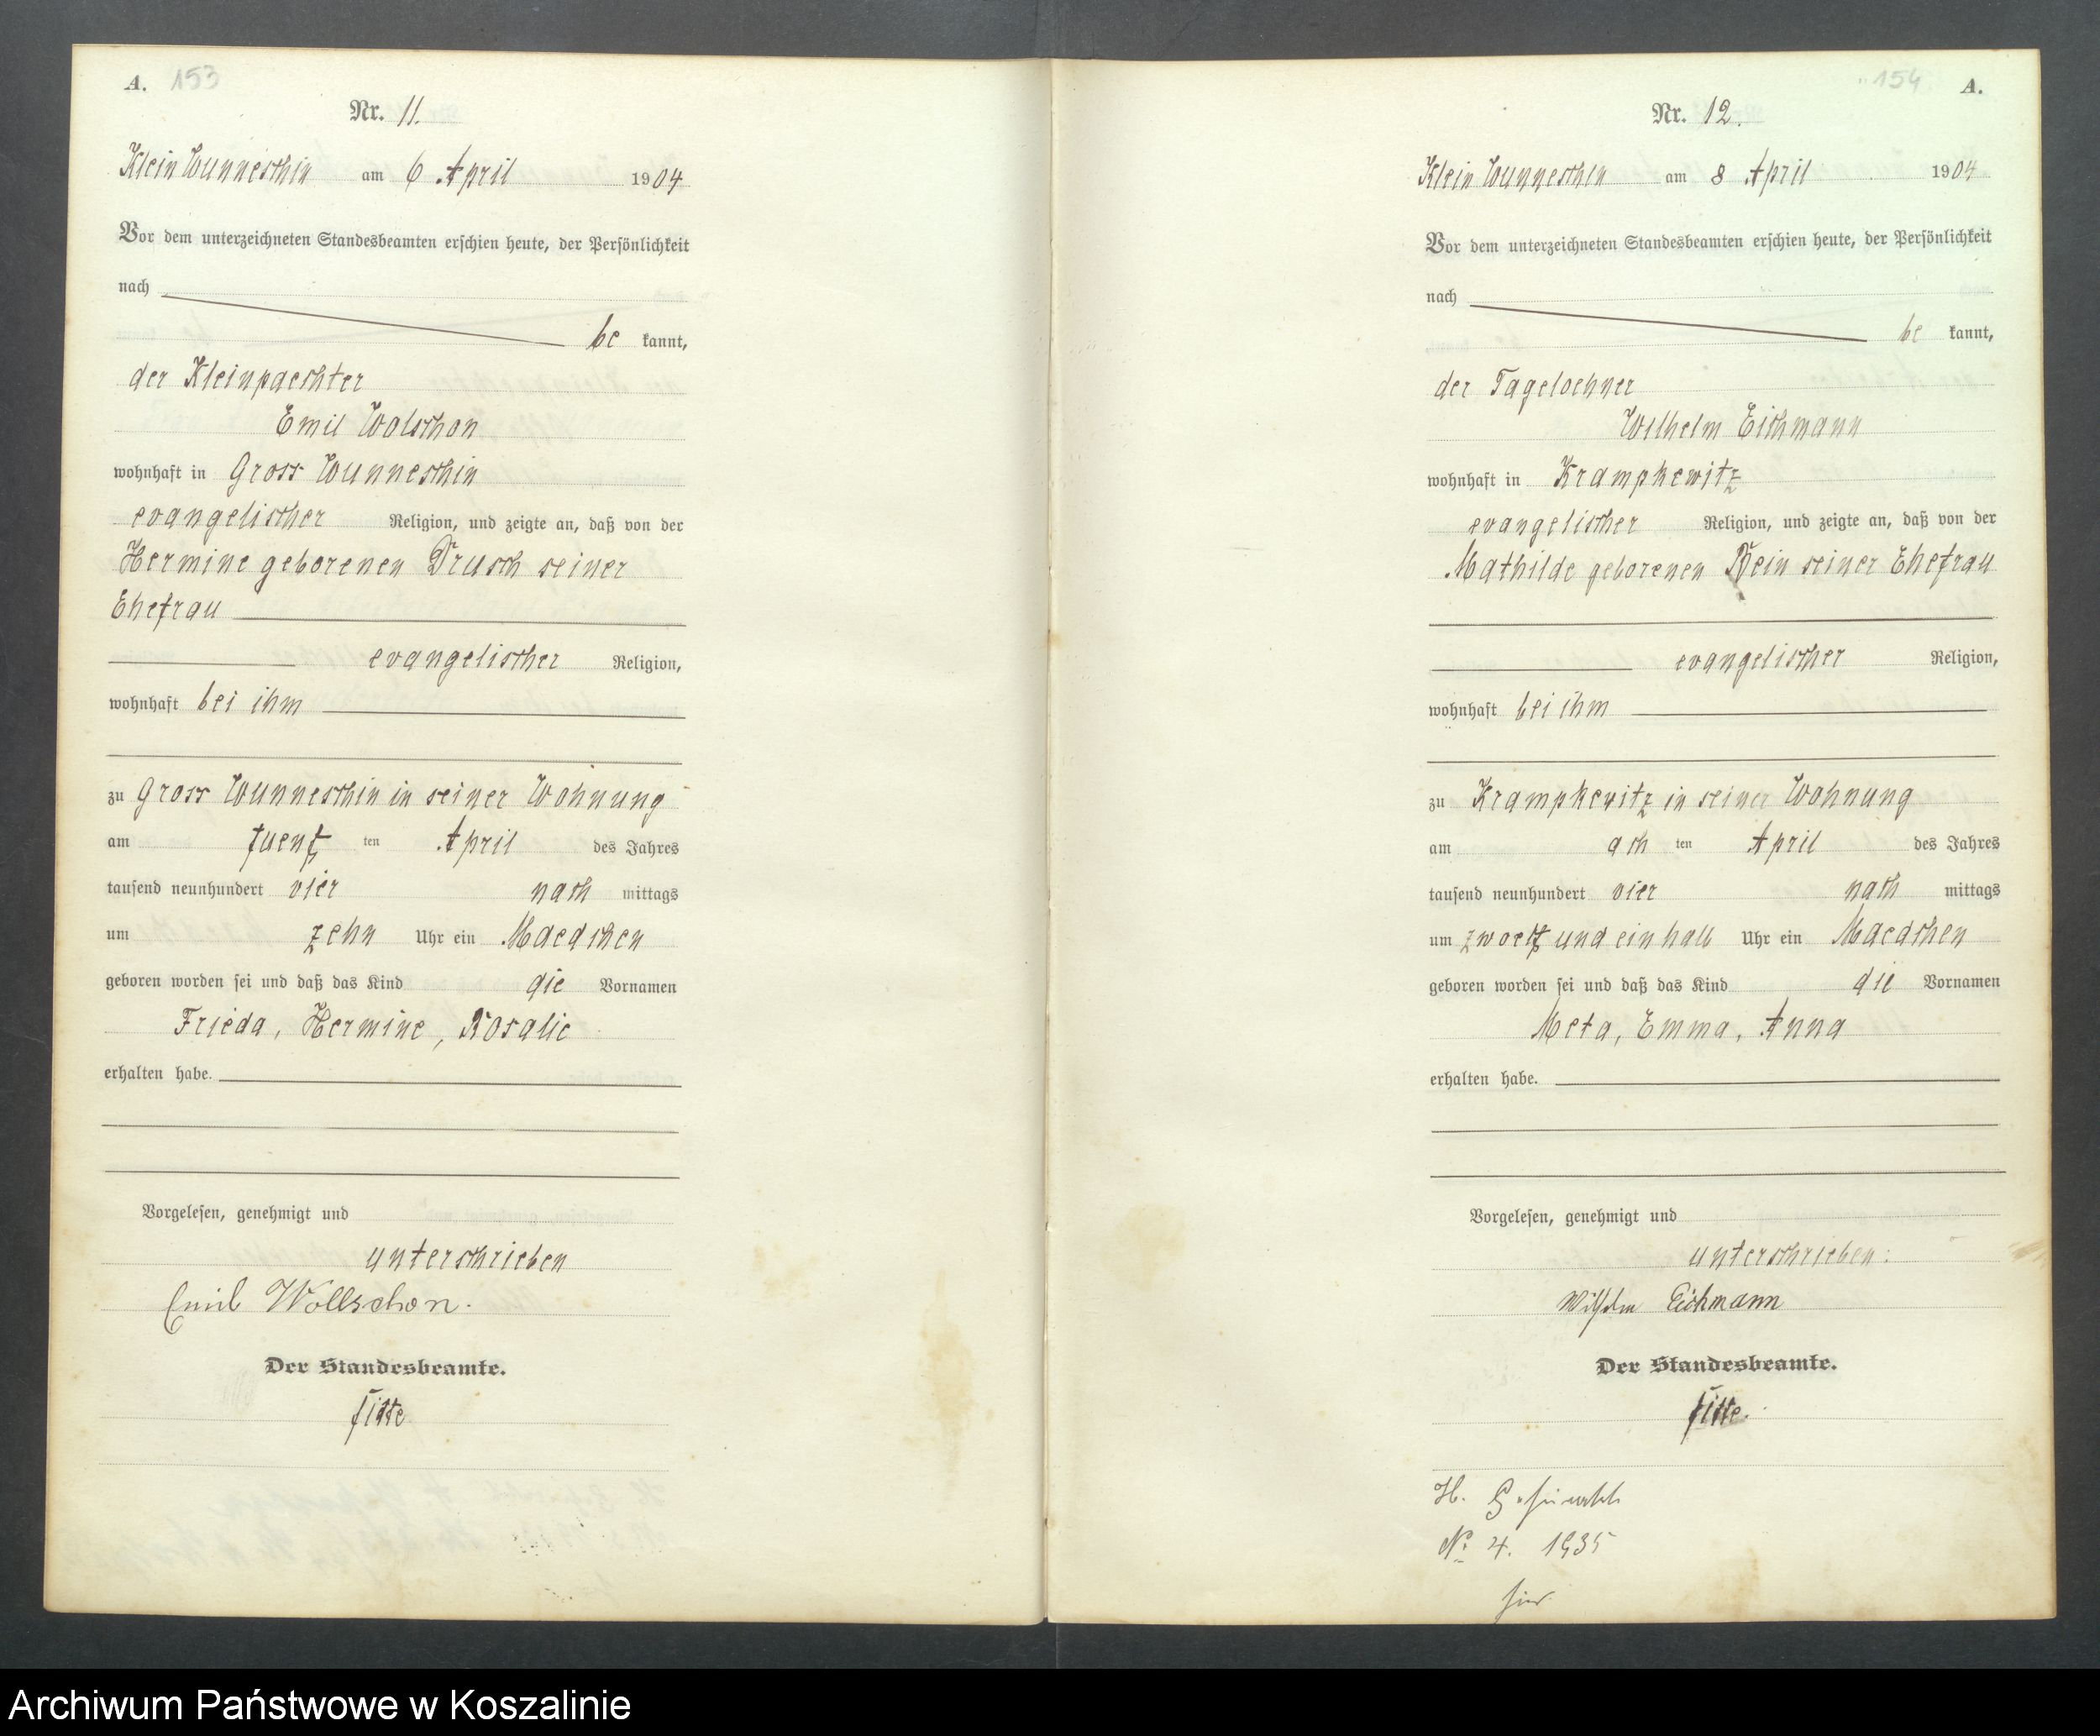 A. 153
Nr. 11.
Klein Wunneschin am 6 April 1904
Vor dem unterzeichneten Standesbeamten erschien heute, der Persönlichkeit
nach
be kannt,
der Kleinpaechter
Emil Wolschon
wohnhaft in Gross Wunneschin
evangelischer Religion, und zeigte an, daß von der
Hermine geborenen Drusch seiner
Ehefrau
evangelischer Religion,
wohnhaft bei ihm
zu Gross Wunneschin in seiner Wohnung
am fuenf ten April des Jahres
tausend neunhundert vier nach mittags
um zehn Uhr ein Maedchen
geboren worden sei und daß das Kind die Vornamen
Frieda, Hermine, Rosalie
erhalten habe.
Vorgelesen, genehmigt und
unterschrieben
Emil Wollschon.
Der Standesbeamte.
154 A.
Nr. 12.
Klein Wunneschin am 8 April 1904
Vor dem unterzeichneten Standesbeamten erschien heute, der Persönlichkeit
nach
be kannt,
der Tageloehner
Wilhelm Eichmann
wohnhaft in Krampkewitz
evangelischer Religion, und zeigte an, daß von der
Mathilde geborenen seiner Ehefrau
evangelischer Religion,
wohnhaft bei ihm
zu Krampkewitz in seiner Wohnung
am ach ten April des Jahres
tausend neunhundert vier nach mittags
um zwoelf und ein halb Uhr ein Maedchen
geboren worden sei und daß das Kind die Vornamen
Meta, Emma, Anna
erhalten habe.
Vorgelesen, genehmigt und
unterschrieben:
Wilhelm Eichmann
Der Standesbeamte.
H.
No 4. 1935
Archiwum Państwowe w Koszalinie